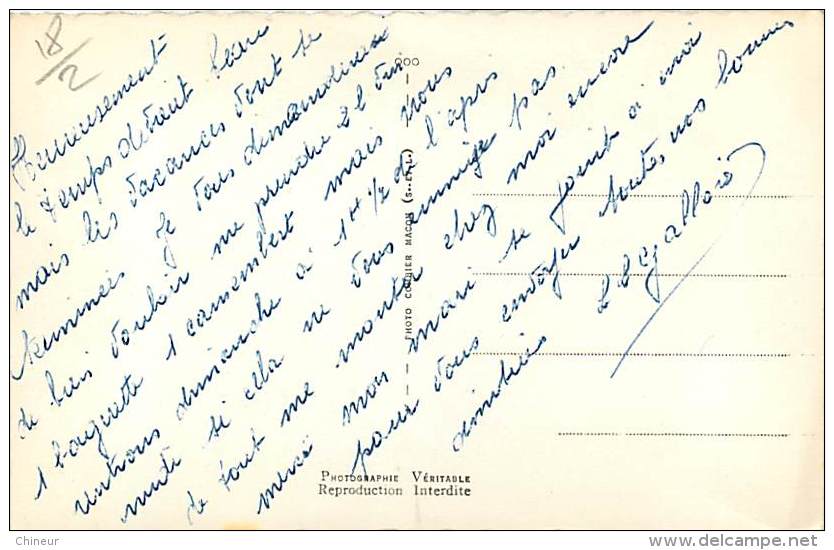 18/2
Heureusement
le temps devient beau
mais les vacances vont se
terminées je vous demanderai
de bien vouloir me prendre 2 l vin
1 baguette 1 camembert mais nous
rentrons dimanche à 1H 1/2 de l'après
midi si cela ne vous ennuye pas
de tout me monter chez moi encore
merci mon mari se joint à moi
pour vous envoyer toutes nos bonnes
amitiés
PHOTO COMBIER MACON (S.-ET-L.)
PHOTOGRAPHIE VÉRITABLE
Reproduction Interdite
Chineur
www.delcampe.net